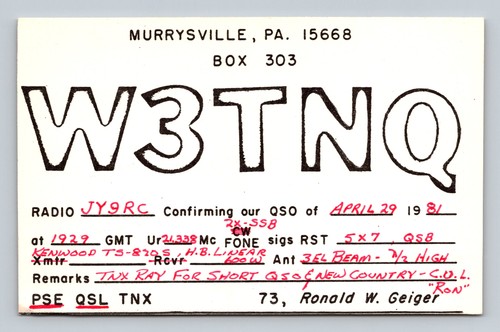 MURRYSVILLE, PA. 15668
BOX 303
W3TNQ
RADIO JY9RC Confirming our QSO of APRIL 29 1981
2X-SSB
at 1929 GMT Ur 21.338 Mc CW FONE sigs RST 5X7, QSB
KENWOOD TS-820S, H.B. LINEAR 600W
Xmtr -Rcvr Ant 3 EL BEAM - λ/2 HIGH
Remarks TNX RAY FOR SHORT QSO & NEW COUNTRY - C.U.L.
"RON"
PSE QSL TNX 73, Ronald W. Geiger